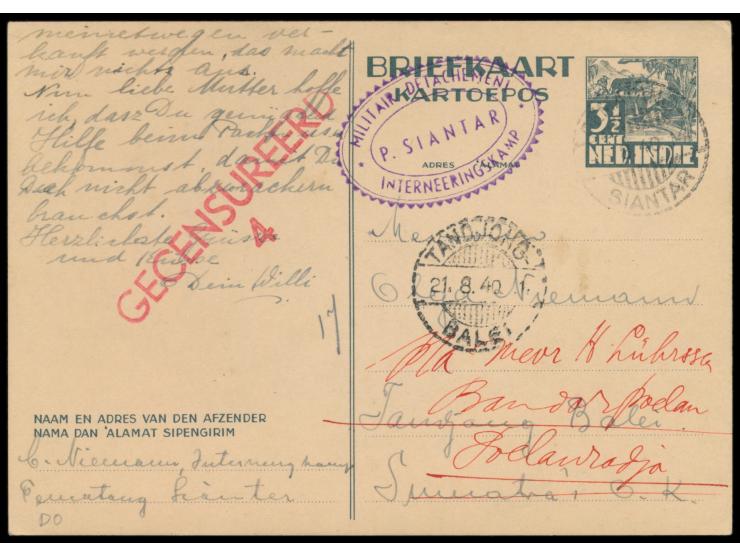 meinetwegen ver-
kauft werden, das macht
mir nichts aus.
Nun liebe Mutter hoffe
ich, dasz Du genügend
Hilfe beim
bekommst, damit Du
Dich nicht
brauchst.
Herzlichste Grüsse
und Küsse
Dein Willi
GECENSUREERD
4
17
NAAM EN ADRES VAN DEN AFZENDER
NAMA DAN ALAMAT SIPENGIRIM
C. Niemann, Interneringskamp
Pematang Siantar
DO
BRIEFKAART
KARTOEPOS
MILITAIR DETACHEMENT
P. SIANTAR
INTERNEERINGSKAMP
ADRES ALAMAT
3½
CENT
NED. INDIE
SIANTAR
TANDJONG-
21.8.40
BALEI
Niemann
p/a mevr H Lührssen
Bandar
Tandjong Balei
Poelauradja
Sumatra O.K.